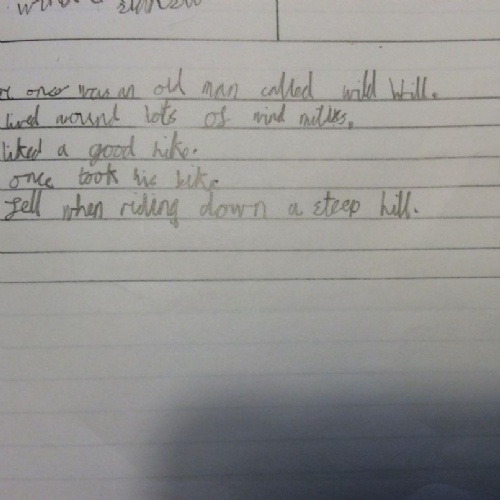 once was an old man called wild Will.
lived around lots of wind millss.
liked a good hike.
once took his bike.
fell when riding down a steep hill.